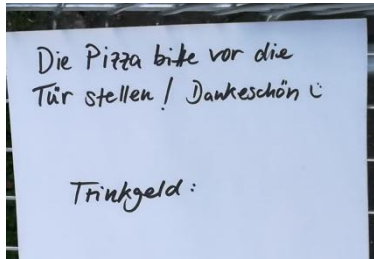 Die Pizza bitte vor die
Tür stellen! Dankeschön ü
Trinkgeld: